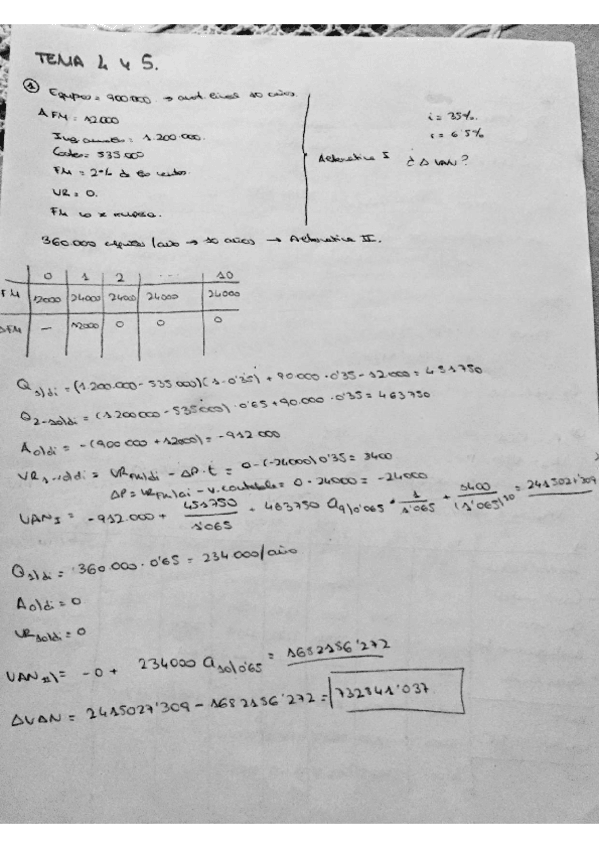 TEMA 4 y 5.
① Equipos = 900.000 → amort. lineal 10 años.
Δ FM = 12000
Ing anuales = 1.200.000.
Costes = 535.000
FM = 2% de las ventas
VR = 0.
FM no se recupera.
i = 35%.
= 6'5%
Alternativa I ¿Δ VAN?
360.000 /año → 10 años → Alternativa II.
0 1 2 ... 10
FM 12000 24000 24000 24000 24000
ΔFM — 12000 0 0 0
Q1/di = (1.200.000 - 535 000)(1-0'35) + 90.000 · 0'35 - 12.000 = 451750
Q2-10/di = (1200000 - 535000) · 0'65 + 90.000 · 0'35 = 463750
A0/di = -(900 000 + 12000) = -912 000
= 0-(-24000)0'35 = 8400
ΔP = - V. contable = 0 - 24000 = -24000
VAN I = -912.000 + 451750/1'065 + 463750 a9|0'065 · 1/1'065 + 8400/(1'065)^10 = 2415027'309
Q1/di = 360.000 · 0'65 = 234 000/año
A0/di = 0
VR10/di = 0
VAN II = -0 + 234000 a10|0'65 = 1682186'272
ΔVAN = 2415027'309 - 1682186'272 = 732841'037.